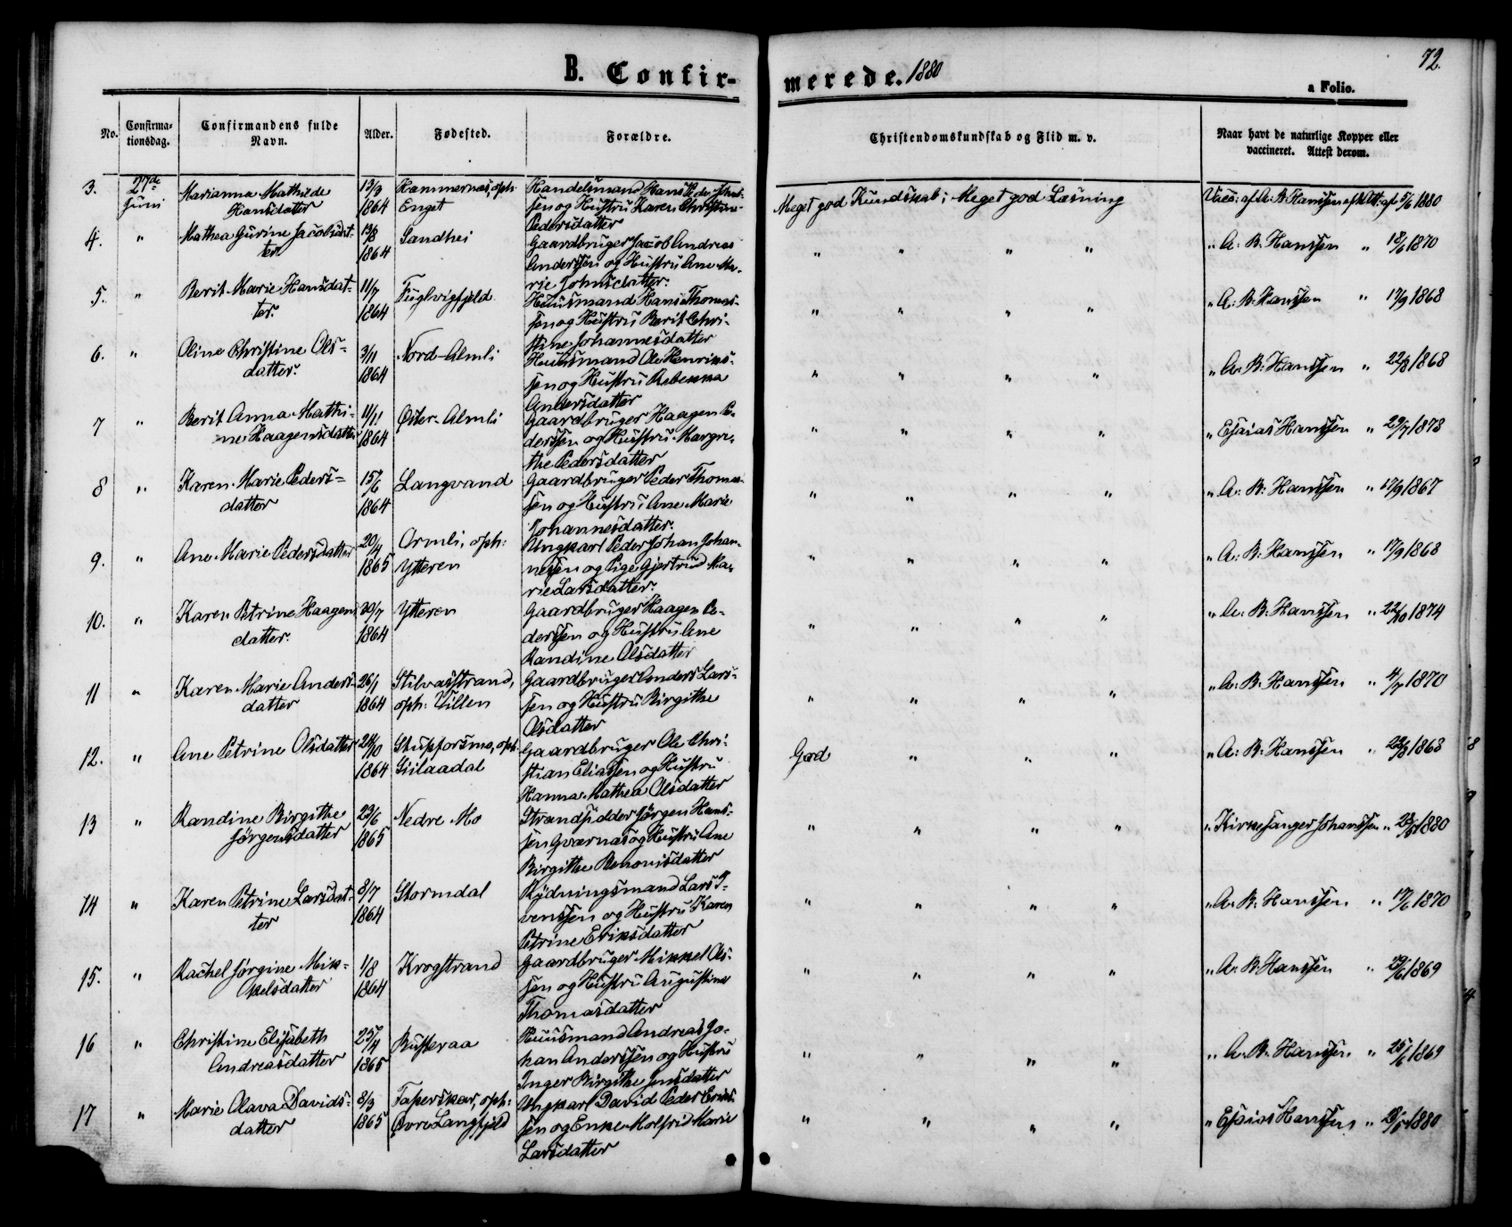 72.
B. Confir-
merede. 1880
a Folio.
No.
Confirma-
tionsdag.
Confirmandens fulde
Navn.
Alder.
Fødested.
Forældre.
Christendomskundskab og Flid m. v.
Naar havt de naturlige Kopper eller
vaccineret. Attest derom.
3. 27de Marianna Mathilde 13/3 Hammernæs, oph.
Juni Hansdatter 1864 Enget
Handelsmand Hans Peder
sen og Hustru Karen Christine
Pedersdatter
Meget god Kundskab; Meget god Læsning
Vacc. af A. B. Hanssen 1880
4. " Mathea Gurine Jacobsdat- 19/8 Sandhei
ter 1864
Gaardbruger Jacob Andreas
Anderssen og Hustru Ane Ma-
rie Johnsdatter.
" " " "
" A. B. Hanssen " 18/6 1870
5. " Berit Marie Hansdat- 11/7 Fuglvigfjeld
ter. 1864
Huusmand Hans Thomas-
sen og Hustru Berit Chri-
stine Johannesdatter
" " " "
" A. B. Hanssen " 17/9 1868
6. " Oline Christine Ols- 3/11 Nord-Almli
datter. 1864
Huusmand Ole Henriks-
sen og Hustru Rebekka
Andersdatter
" " " "
" A. B. Hanssen " 22/8 1868
7 " Berit Anna Mathi- 11/11 Øster-Almli
ne Haagensdatter 1864
Gaardbruger Haagen Pe-
dersen og Hustru Margre-
the Pedersdatter
" " " "
" Esaias Hanssen " 23/7 1878
8 " Karen Marie Peders- 15/6 Langvand
datter 1864
Gaardbruger Peder Thomas-
sen og Hustru Ane Marie
Johannesdatter.
" " " "
" A. B. Hanssen " 17/9 1867
9. " Ane Marie Pedersdatter 20/4 Ormli, oph:
1865 Ytteren
Ungkarl Peder Johan Johan-
nesen og Pige Gjertrud Ma-
rie Larsdatter.
" " " "
" A. B. Hanssen " 17/9 1868
10. " Karen Petrine Haagens 20/7 Ytteren
datter. 1864
Gaardbruger Haagen Pe-
derssen og Hustru Ane
Randine Olsdatter
" " " "
" A. B. Hanssen " 22/10 1874
11 " Karen Marie Anders- 26/1 Stilvasstrand,
datter 1864 oph: Villen
Gaardbruger Anders Lars-
sen og Hustru Birgithe
Olsdatter
" " " "
" A. B. Hanssen " 4/7 1870
12. " Ane Petrine Olsdatter 24/10 Stupforsmo, oph
1864 Giilaadal
Gaardbruger Ole Chri-
stian Eliassen og Hustru
Hanna Mathea Olsdatter
God " " "
" A. B. Hanssen " 22/8 1868
13 " Randine Birgithe 29/6 Nedre Mo
Jørgensdatter 1865
Strandsidder Jørgen Hans-
sen Gværnæs og Hustru Ane
Birgithe Benonisdatter
" " " "
" Kirkesanger Johanssen " 1880
14 " Karen Petrine Larsdat- 8/7 Stormdal
ter 1864
Rydningsmand Lars I-
verssen og Hustru Karen
Petrine Eriksdatter
" " " "
" A. B. Hanssen " 17/6 1870
15. " Rachel Jørgine Mik- 1/8 Krogstrand
kelsdatter 1864
Gaardbruger Mikkel Ols-
sen og Hustru Augustine
Thomasdatter
" " " "
" A. B. Hanssen " 1869
16 " Christine Elisabeth 25/4 Russeraa
Andreasdatter 1865
Huusmand Andreas Jo-
han Anderssen og Hustru
Inger Birgithe Jensdatter
" " " "
" A. B. Hanssen " 25/6 1869
17 " Marie Olava Davids- 8/3 Taperskar, oph:
datter 1865 Øvre Langfjeld
Ungkarl David Peder Eriks-
sen og Enke Molfrid Marie
Larsdatter
" " " "
" Esaias Hanssen " 1880